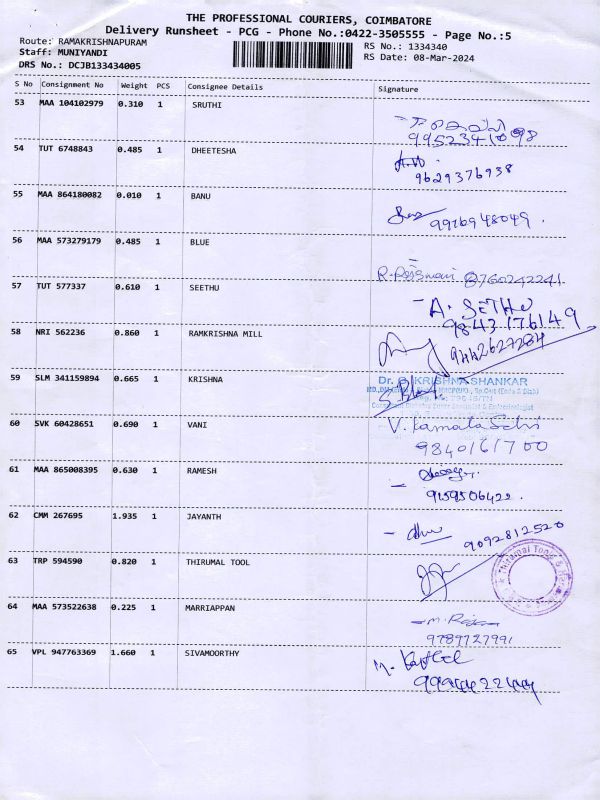 THE PROFESSIONAL COURIERS, COIMBATORE
Delivery Runsheet - PCG - Phone No.:0422-3505555 - Page No.:5
Route: RAMAKRISHNAPURAM
RS No.: 1334340
Staff: MUNIYANDI
RS Date: 08-Mar-2024
DRS No.: DCJB133434005
S No Consignment No Weight PCS Consignee Details Signature
53 MAA 104102979 0.310 1 SRUTHI
54 TUT 6748843 0.485 1 DHEETESHA
9629376938
55 MAA 864180082 0.010 1 BANU
9976948049.
56 MAA 573279179 0.485 1 BLUE
8760242241
57 TUT 577337 0.610 1 SEETHU
- A. SETHU
9843176149
58 NRI 562236 0.860 1 RAMKRISHNA MILL
9442627284
59 SLM 341159894 0.665 1 KRISHNA
Dr. G. KRISHNA SHANKAR
60 SVK 60428651 0.690 1 VANI
V. Kamala Selvi
9840161700
61 MAA 865008395 0.630 1 RAMESH
9159506422.
62 CMM 267695 1.935 1 JAYANTH
9092812520
63 TRP 594590 0.820 1 THIRUMAL TOOL
64 MAA 573522638 0.225 1 MARRIAPPAN
9789727991
65 VPL 947763369 1.660 1 SIVAMOORTHY
9994422444